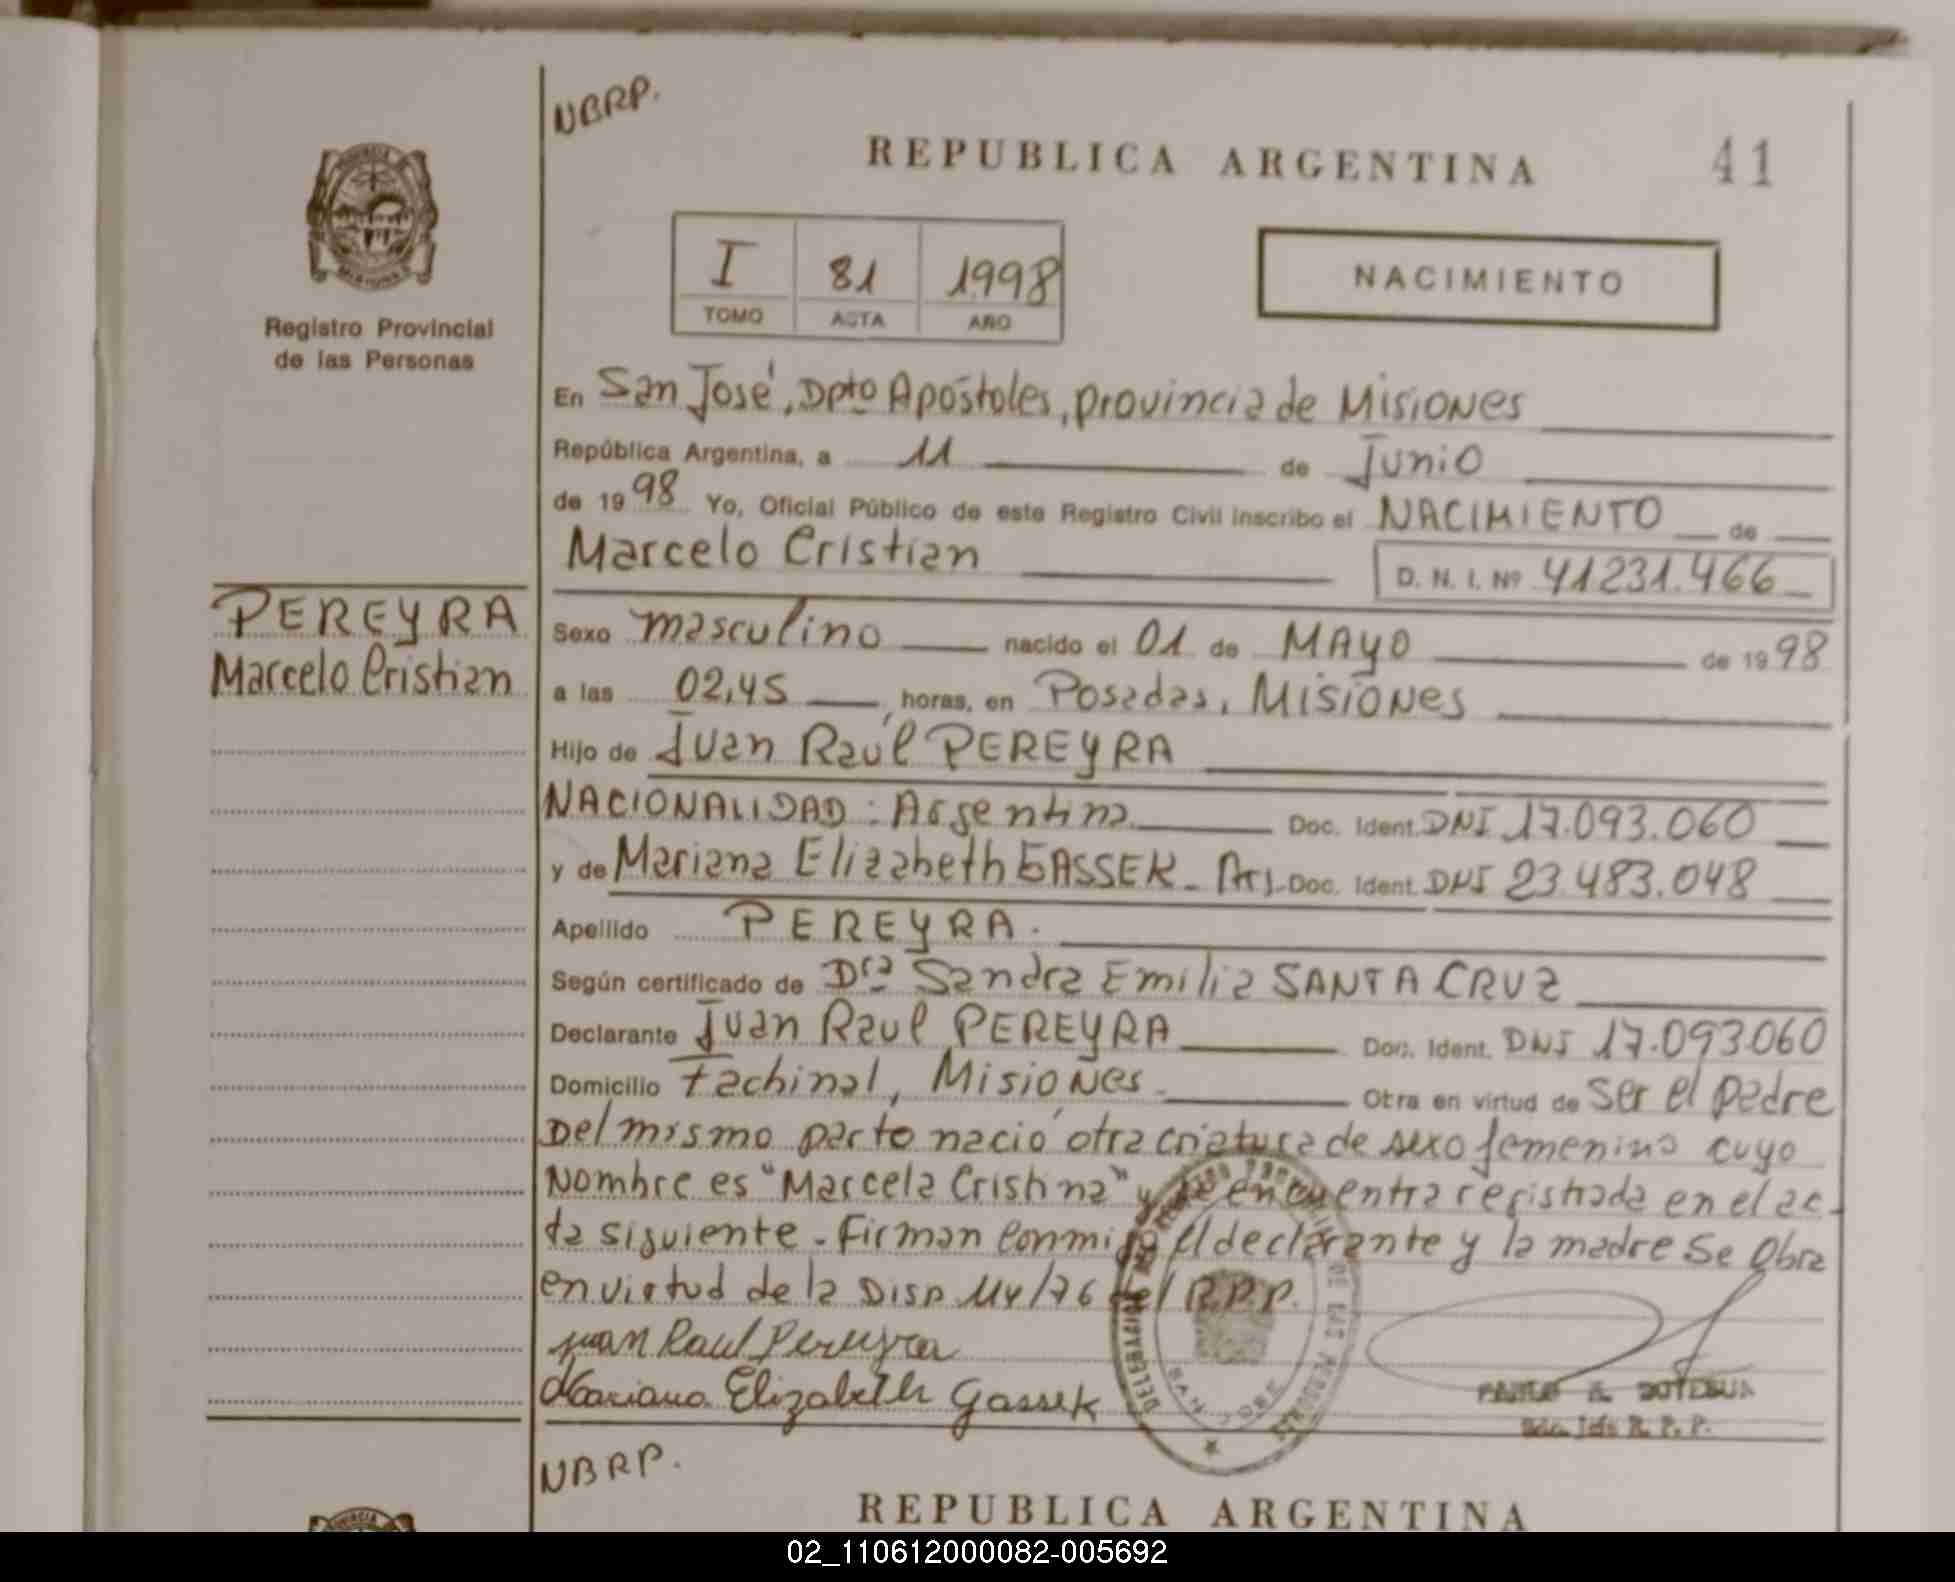 NBRP.
REPUBLICA ARGENTINA
41
I 81 1998
TOMO ACTA AÑO
NACIMIENTO
Registro Provincial
de las Personas
En San José, Dpto Apóstoles, provincia de Misiones
República Argentina, a 11 de Junio
de 1998 Yo, Oficial Público de este Registro Civil inscribo el NACIMIENTO de
Marcelo Cristian
D. N. I. Nº 41231.466
PEREYRA
Marcelo Cristian
Sexo masculino nacido el 01 de MAYO de 1998
a las 02,45 horas, en Posadas, Misiones
Hijo de Juan Raúl PEREYRA
NACIONALIDAD: Argentina Doc. Ident. DNI 17.093.060
y de Mariana Elizabeth GASSEK - Arj. Doc. Ident. DNI 23.483.048
Apellido PEREYRA.
Según certificado de Dra Sandra Emilia SANTA CRUZ
Declarante Juan Raul PEREYRA Doc. Ident. DNI 17.093.060
Domicilio Fachinal, Misiones. Otra en virtud de ser el padre
Del mismo parto nació otra criatura de sexo femenino cuyo
Nombre es "Marcela Cristina" y se encuentra registrada en el ac-
ta siguiente - Firman conmigo el declarante y la madre Se Obra
en virtud de la Disp 114/76 del R.P.P.
Juan Raul Pereyra
Mariana Elizabeth Gassek
DE LAS PERSONAS
SAN JOSE
R. P. P.
NBRP.
REPUBLICA ARGENTINA
02_110612000082-005692